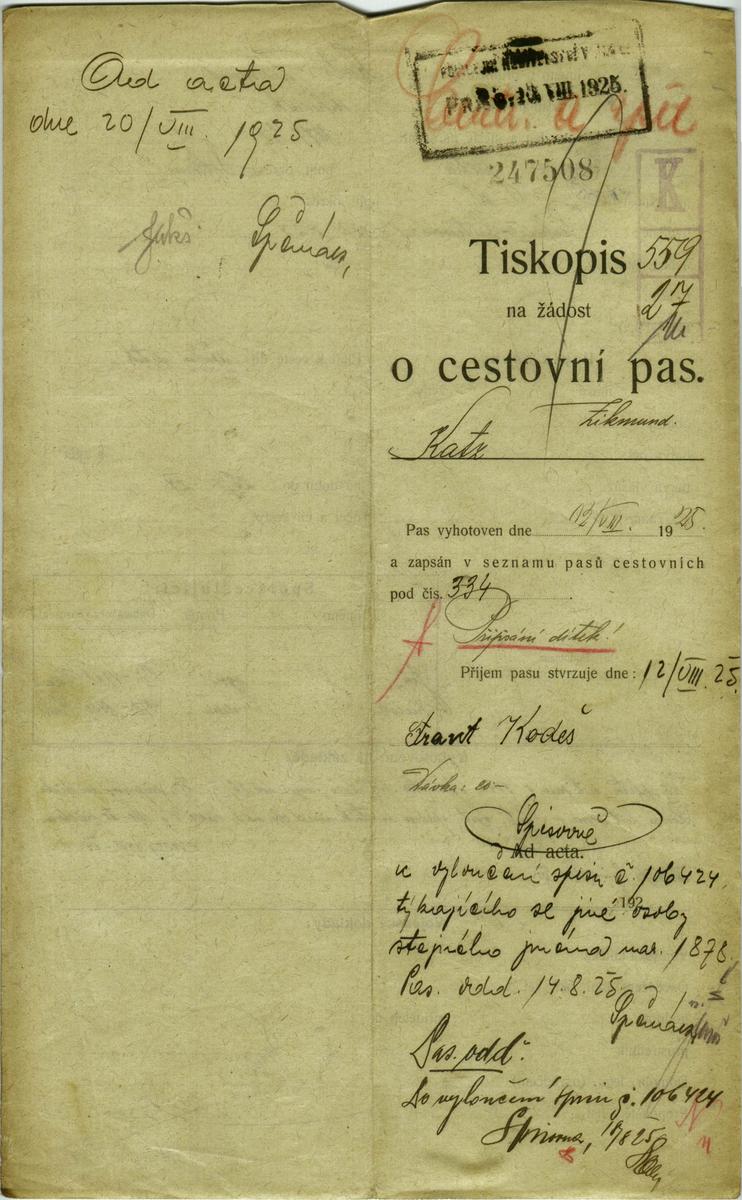 Ad acta
dne 20/VIII. 1925.
PRAHA
VIII. 1925.
247508
K
Tiskopis 559
na žádost 27
o cestovní pas.
Zikmund.
Katz
Pas vyhotoven dne 12/VIII. 1925.
a zapsán v seznamu pasů cestovních
pod čís. 334
Připsání dítek!
Příjem pasu stvrzuje dne: 12/VIII. 25.
Frant Kodeš
Dávka:
Spisovně
Ad acta.
192
k vyloučení spisu č. 106424
týkajícího se jiné osoby
stejného jména nar. 1878.
Pas. odd. 14.8.25.
Pas. odd.
Po vyloučení spisu č. 106424
Spisovna, 18/8 25